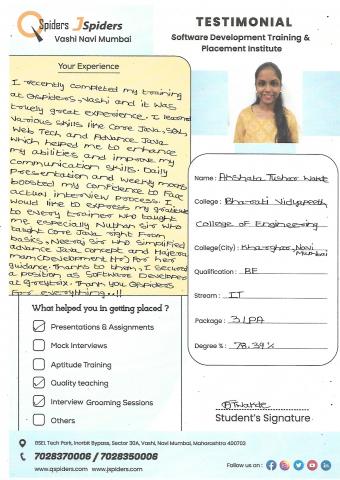 QSpiders JSpiders
Vashi Navi Mumbai
TESTIMONIAL
Software Development Training &
Placement Institute
Your Experience
I recently completed my training
at Qspiders, Vashi and it was
truely great experience. I learnd
various skills like Core Java, SQL,
Web Tech and Advance Java
which helped me to enhance
my abilities and improve my
communication skills. Daily
Presentation and weekly mocks
boosted my confidence to face
actual interview process. I
would like to express my gratitude
to every trainer who taught
me especially Nuthan Sir who
taught Core Java right from
basics, Neeraj Sir who simplified
advance Java concept and
mam (Development Hr) For her
guidance. Thanks to them, I secured
a position as Software Developer
at Greytrix. Thank you Qspiders
For everything..!!
Name: Akshata Tushar
College: Bharati Vidyapeeth
College of Engineering
College(City): Kharghar, Navi
Mumbai
Qualification: BE
Stream: IT
Package: 3 LPA
Degree %: 78.39%
What helped you in getting placed ?
Presentations & Assignments
Mock Interviews
Aptitude Training
Quality teaching
Interview Grooming Sessions
Others
Student's Signature
BSEL Tech Park, Inorbit Bypass, Sector 30A, Vashi, Navi Mumbai, Maharashtra 400703
7028370006 / 7028350006
www.qspiders.com www.jspiders.com
Follow us on :